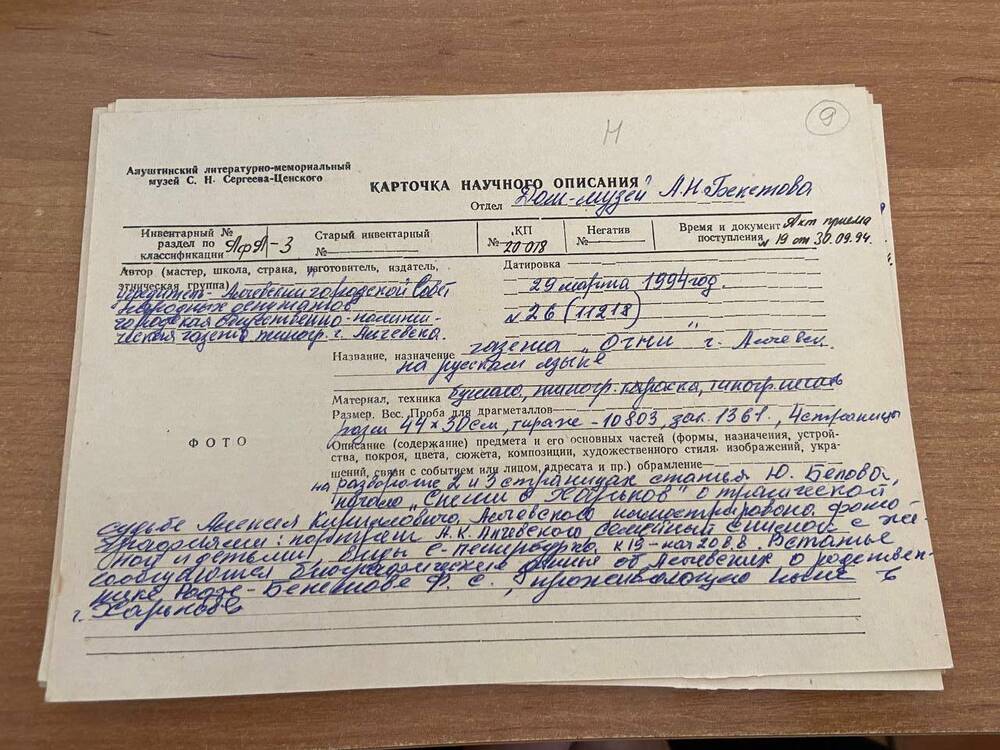 Н
9
Алуштинский литературно-мемориальный
музей С. Н. Сергеева-Ценского
КАРТОЧКА НАУЧНОГО ОПИСАНИЯ
Отдел "Дом-музей А.Н. Бекетова
Инвентарный №
раздел по
классификации АфА-3
Старый инвентарный
№
КП
№ 20 018
Негатив
№
Время и документ Акт приема
поступления № 19 от 30.09.94.
Автор (мастер, школа, страна, изготовитель, издатель,
этническая группа)
учредитель - Алчевский городской Совет
народных депутатов
городская общественно-полити-
ческая газета типогр. г. Алчевска.
Датировка
29 марта 1994 год.
№ 26 (11218)
Название, назначение газета "Огни" г. Алчевск.
на русском языке
Материал, техника бумага, типогр. краска, типогр. печать
Размер. Вес. Проба для драгметаллов
разм 44×30 см, тираж - 10803, зак. 1361., 4 страницы
ФОТО
Описание (содержание) предмета и его основных частей (формы, назначения, устрой-
ства, покроя, цвета, сюжета, композиции, художественного стиля, изображений, укра-
шений, связи с событием или лицом, адресата и пр.) обрамление
на развороте 2 и 3 страницах статья Ю. Белова,
начало "Спешим в Харьков" о трагической
судьбе Алексея Кирилловича Алчевского иллюстрирована фото-
графиями: портрет А.К. Алчевского семейный снимок с же-
ной и детьми, виды С-Петербурга к 19 - нач 20 в.в. В статье
сообщаются биографические данные об Алчевских о родствен-
нике - Бекетове Ф. С., проживающую ныне в
г. Харькове